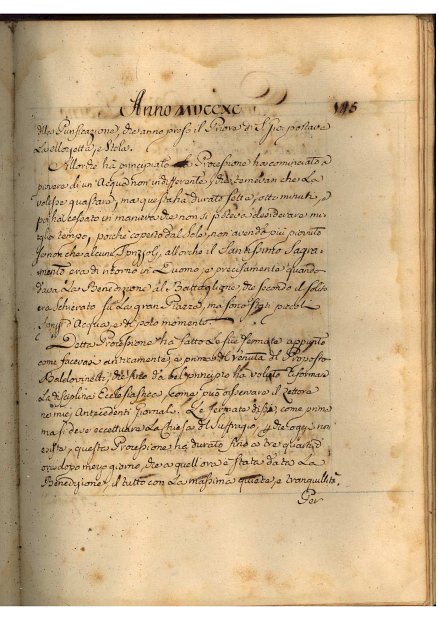 Anno MDCCXC 145
della Purificazione, che anno preso il Priore di S. per portare
La Mozetta, e Stola.
Allorche ha principiato la Processione ha cominciato a
piovere di un Acqua non indifferente, che temevan che La
volesse guastare, ma questa ha durato sette, o otto minuti, e
poi ha cessato in maniera che non si poteva desiderare me
glio tempo, poiche coperto dal Sole, non avendo più piovuto
se non che alcune, allorche il Santissimo Sagra
mento era di ritorno in Duomo, e precisamente quando
dava La Benedizione al Battaglione, che secondo il solito
era Schierato su La gran Piazza, ma sono stati piccoli
d'Acqua, e di pochi momenti.
Detta Processione ha fatto Le sue fermate appunto
come faceva anticamente, e prima di venuta di Proposto
Baldovinetti, che fino da bel principio ha voluto riformare
La disciplina Ecclesiastica, come può osservare il Lettore
ne miei Antecedenti Giornali. Le fermate come prima
ma si deve eccettuare La Chiesa di Suffragio, che oggi non
esiste, questa Processione ha durato fino a tre quarti d
ora dopo mezzo giorno, che a quell'ora è stata data La
Benedizione, il tutto con La massima quiete, e tranquillità.
Per